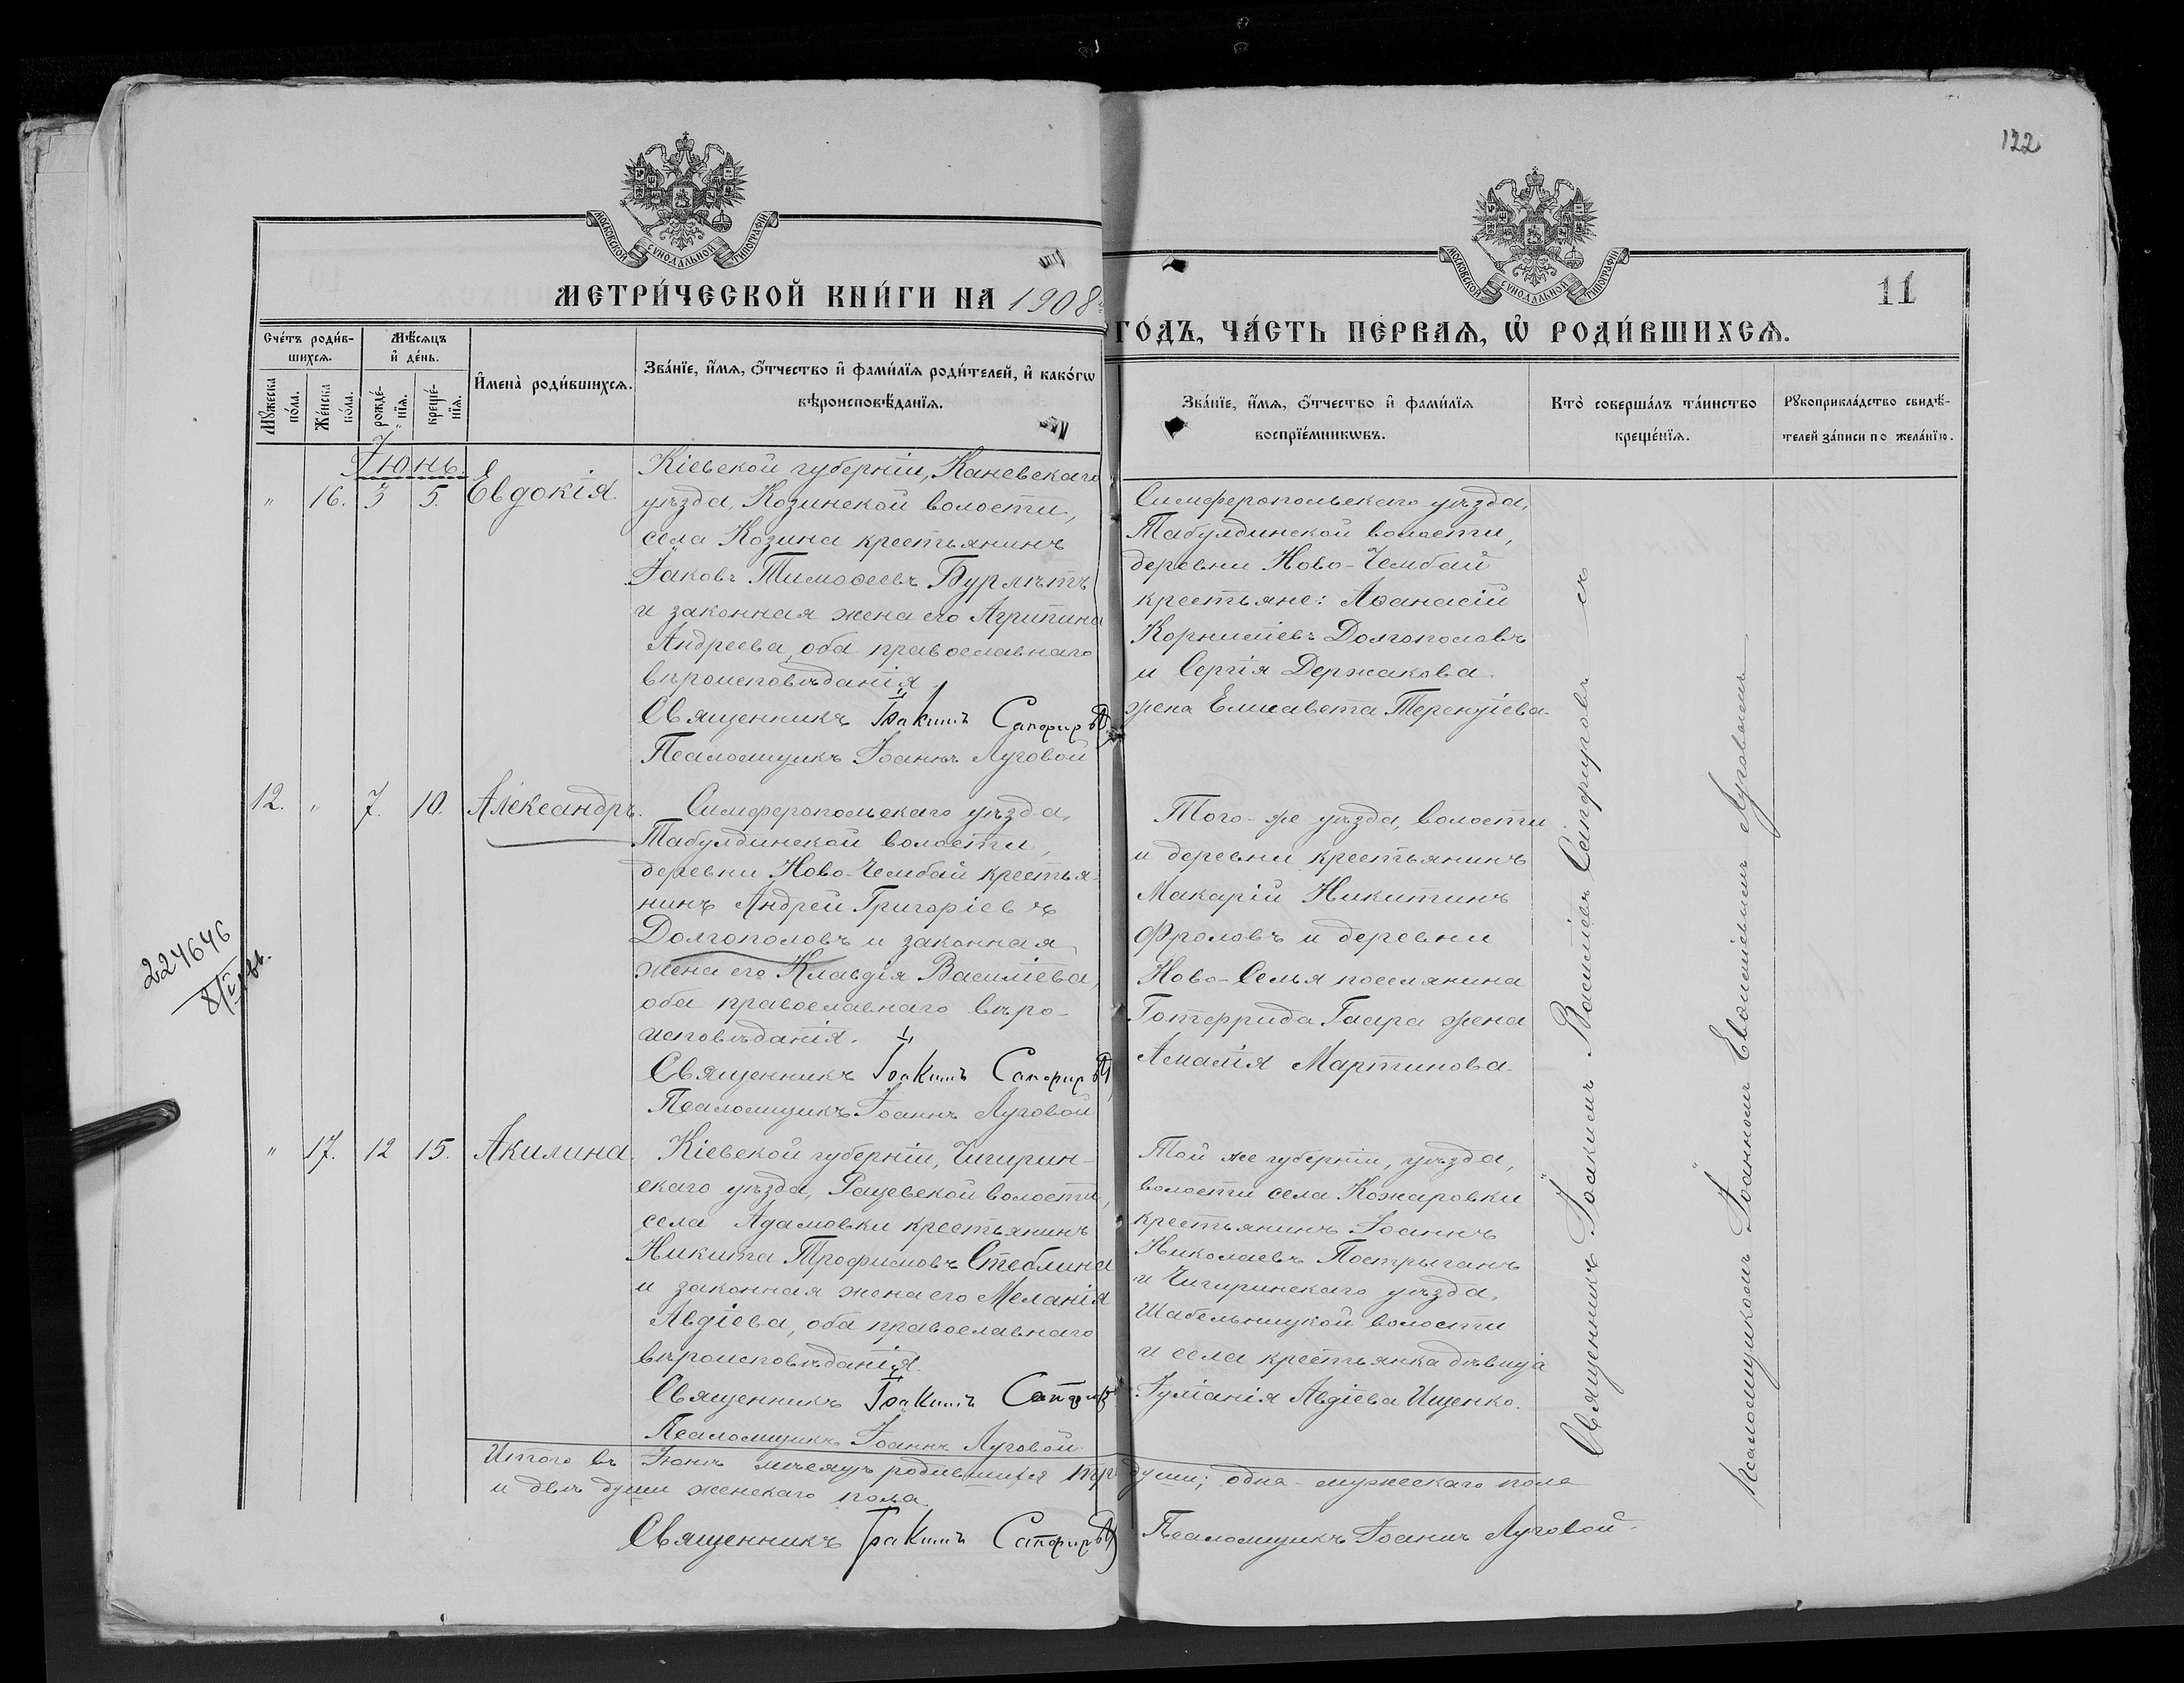 122
МОСКОВСКОЙ СѴНОДАЛЬНОЙ ТИПОГРАФІИ
МОСКОВСКОЙ СѴНОДАЛЬНОЙ ТИПОГРАФІИ
МЕТРИ́ЧЕСКОЙ КНИ́ГИ НА 1908
ГО́ДЪ, ЧА́СТЬ ПЕ́РВАѦ, Ѡ҆ РОДИ́ВШИХСѦ.
11
Сче́тъ роди́в-
шихсѧ.
Мꙋ́жеска
по́ла.
Же́нска
по́ла.
Мѣ́сѧцъ
и҆ де́нь.
рожде́-
нїѧ.
креще́-
нїѧ.
И҆мена̀ роди́вшихсѧ.
Зва́нїе, и҆́мѧ, ѻ҆́тчество и҆ фами́лїѧ роди́телей, и҆ како́гѡ
вѣроисповѣ́данїѧ.
Зва́нїе, и҆́мѧ, ѻ҆́тчество и҆ фами́лїѧ
воспрїе́мникѡвъ.
Кто̀ соверша́лъ та́инство
креще́нїѧ.
Рꙋкоприкла́дство свидѣ́-
телей за́писи по жела́нїю.
Іюнь.
" 16. 3 5. Евдокія.
Кіевской губерніи, Каневскаго
уѣзда, Козинской волости,
села Козина крестьянинъ
Іаковъ Тимоѳеевъ Бурмѣтъ
и законная жена его Агрипина
Андреева, оба православнаго
вѣроисповѣданія.
Священникъ Іоакимъ Сапфировъ
Псаломщикъ Іоаннъ Луговой
Симферопольскаго уѣзда,
Табулдинской волости,
деревни Ново-Чембай
крестьяне: Аѳанасій
Корниліевъ Долгополовъ
и Сергія Держакова
жена Елисавета Терентіева.
12. " 7. 10. Александръ.
Симферопольскаго уѣзда,
Табулдинской волости,
деревни Ново-Чембай крестья-
нинъ Андрей Григоріевъ
Долгополовъ и законная
жена его Клавдія Василіева,
оба православнаго вѣро-
исповѣданія.
Священникъ Іоакимъ Сапфировъ
Псаломщикъ Іоаннъ Луговой
Того-же уѣзда, волости
и деревни крестьянинъ
Макарій Никитинъ
Фроловъ и деревни
Ново-Семья поселянина
Готфрида Гаара жена
Амалія Мартинова.
224646
" 17. 12 15. Акилина.
Кіевской губерніи, Чигирин-
скаго уѣзда, Рацевской волости,
села Адамовки крестьянинъ
Никита Трофимовъ Стеблина
и законная жена его Меланія
Авдіева, оба православнаго
вѣроисповѣданія.
Священникъ Іоакимъ Сапфировъ
Псаломщикъ Іоаннъ Луговой.
Той же губерніи, уѣзда,
волости села Кожаровки
крестьянинъ Іоаннъ
Николаевъ Постриганъ
и Чигиринскаго уѣзда,
Шабельницкой волости
и села крестьянка дѣвица
Іуліанія Авдіева Ищенко.
Священникъ Іоакимъ Василіевъ Сапфировъ съ
псаломщикомъ Іоанномъ Луговымъ
Итого въ Іюнѣ мѣсяцѣ родившихся три души; одна мужескаго пола
и двѣ души женскаго пола.
Священникъ Іоакимъ Сапфировъ Псаломщикъ Іоаннъ Луговой.